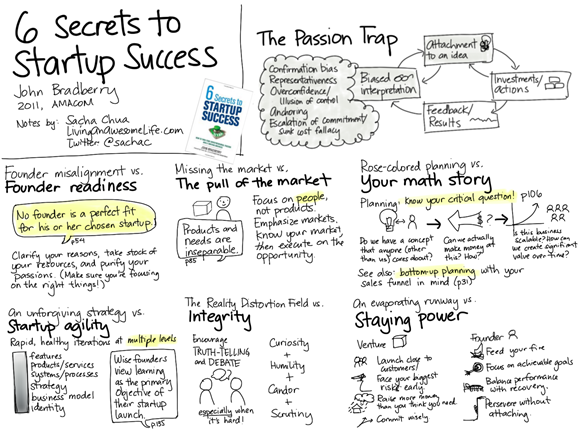 6 Secrets to
Startup Success
John Bradberry
2011, AMACOM
Notes by: Sacha Chua
LivingAnAwesomeLife.com
Twitter @sachac
6 Secrets to
STARTUP
SUCCESS
The Passion Trap
Confirmation bias
Representativeness
Overconfidence/
Illusion of control
Anchoring
Escalation of commitment/
sunk cost fallacy
Biased
interpretation
Attachment
to an idea
Investments/
actions
Feedback/
Results
Founder misalignment vs.
Founder readiness
No founder is a perfect fit
for his or her chosen startup.
p54
Clarify your reasons, take stock of
your resources, and purify your
passions. (Make sure you're focusing
on the right things!)
Missing the market vs.
The pull of the market
Products and
needs are
inseparable.
p85
Focus on people,
not products.
Emphasize markets,
know your market,
then execute on the
opportunity.
Rose-colored planning vs.
Your math story
Planning: know your critical question! p106
Do we have a concept
that anyone (other
than us) cares about?
Can we actually
make money at
this? How?
Is this business
scaleable? How can
we create significant
value over time?
See also: bottom-up planning with your
sales funnel in mind (p31)
An unforgiving strategy vs.
Startup agility
Rapid, healthy iterations at multiple levels
features
products/services
systems/processes
strategy
business model
identity
Wise founders
view learning
as the primary
Objective of
their startup
launch.
p135
The Reality Distortion Field vs.
Integrity
Encourage
TRUTH-TELLING
and DEBATE
especially when
it's hard!
Curiosity
+
Humility
+
Candor
+
Scrutiny
An evaporating runway vs.
Staying power
Venture
Launch close to
customers!
Face your biggest
risks early.
Raise more money
than you think you need
Commit wisely
Founder
Feed your fire
Focus on achievable goals
Balance performance
with recovery.
Persevere without
attaching.